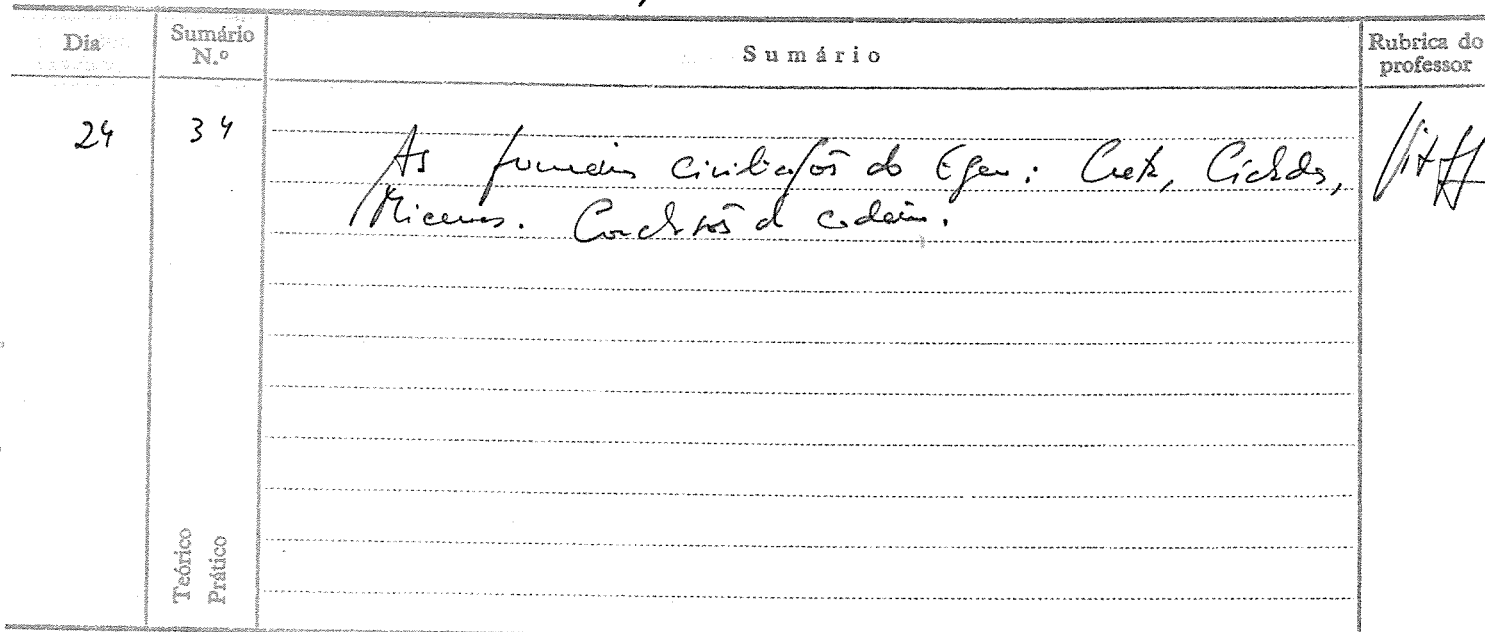 Dia Sumário N.º Sumário Rubrica do professor
24 34 As primeiras civilizações do Egeu: Creta, Cíclades,
Micenas. Conclusões da cadeira.
Teórico
Prático